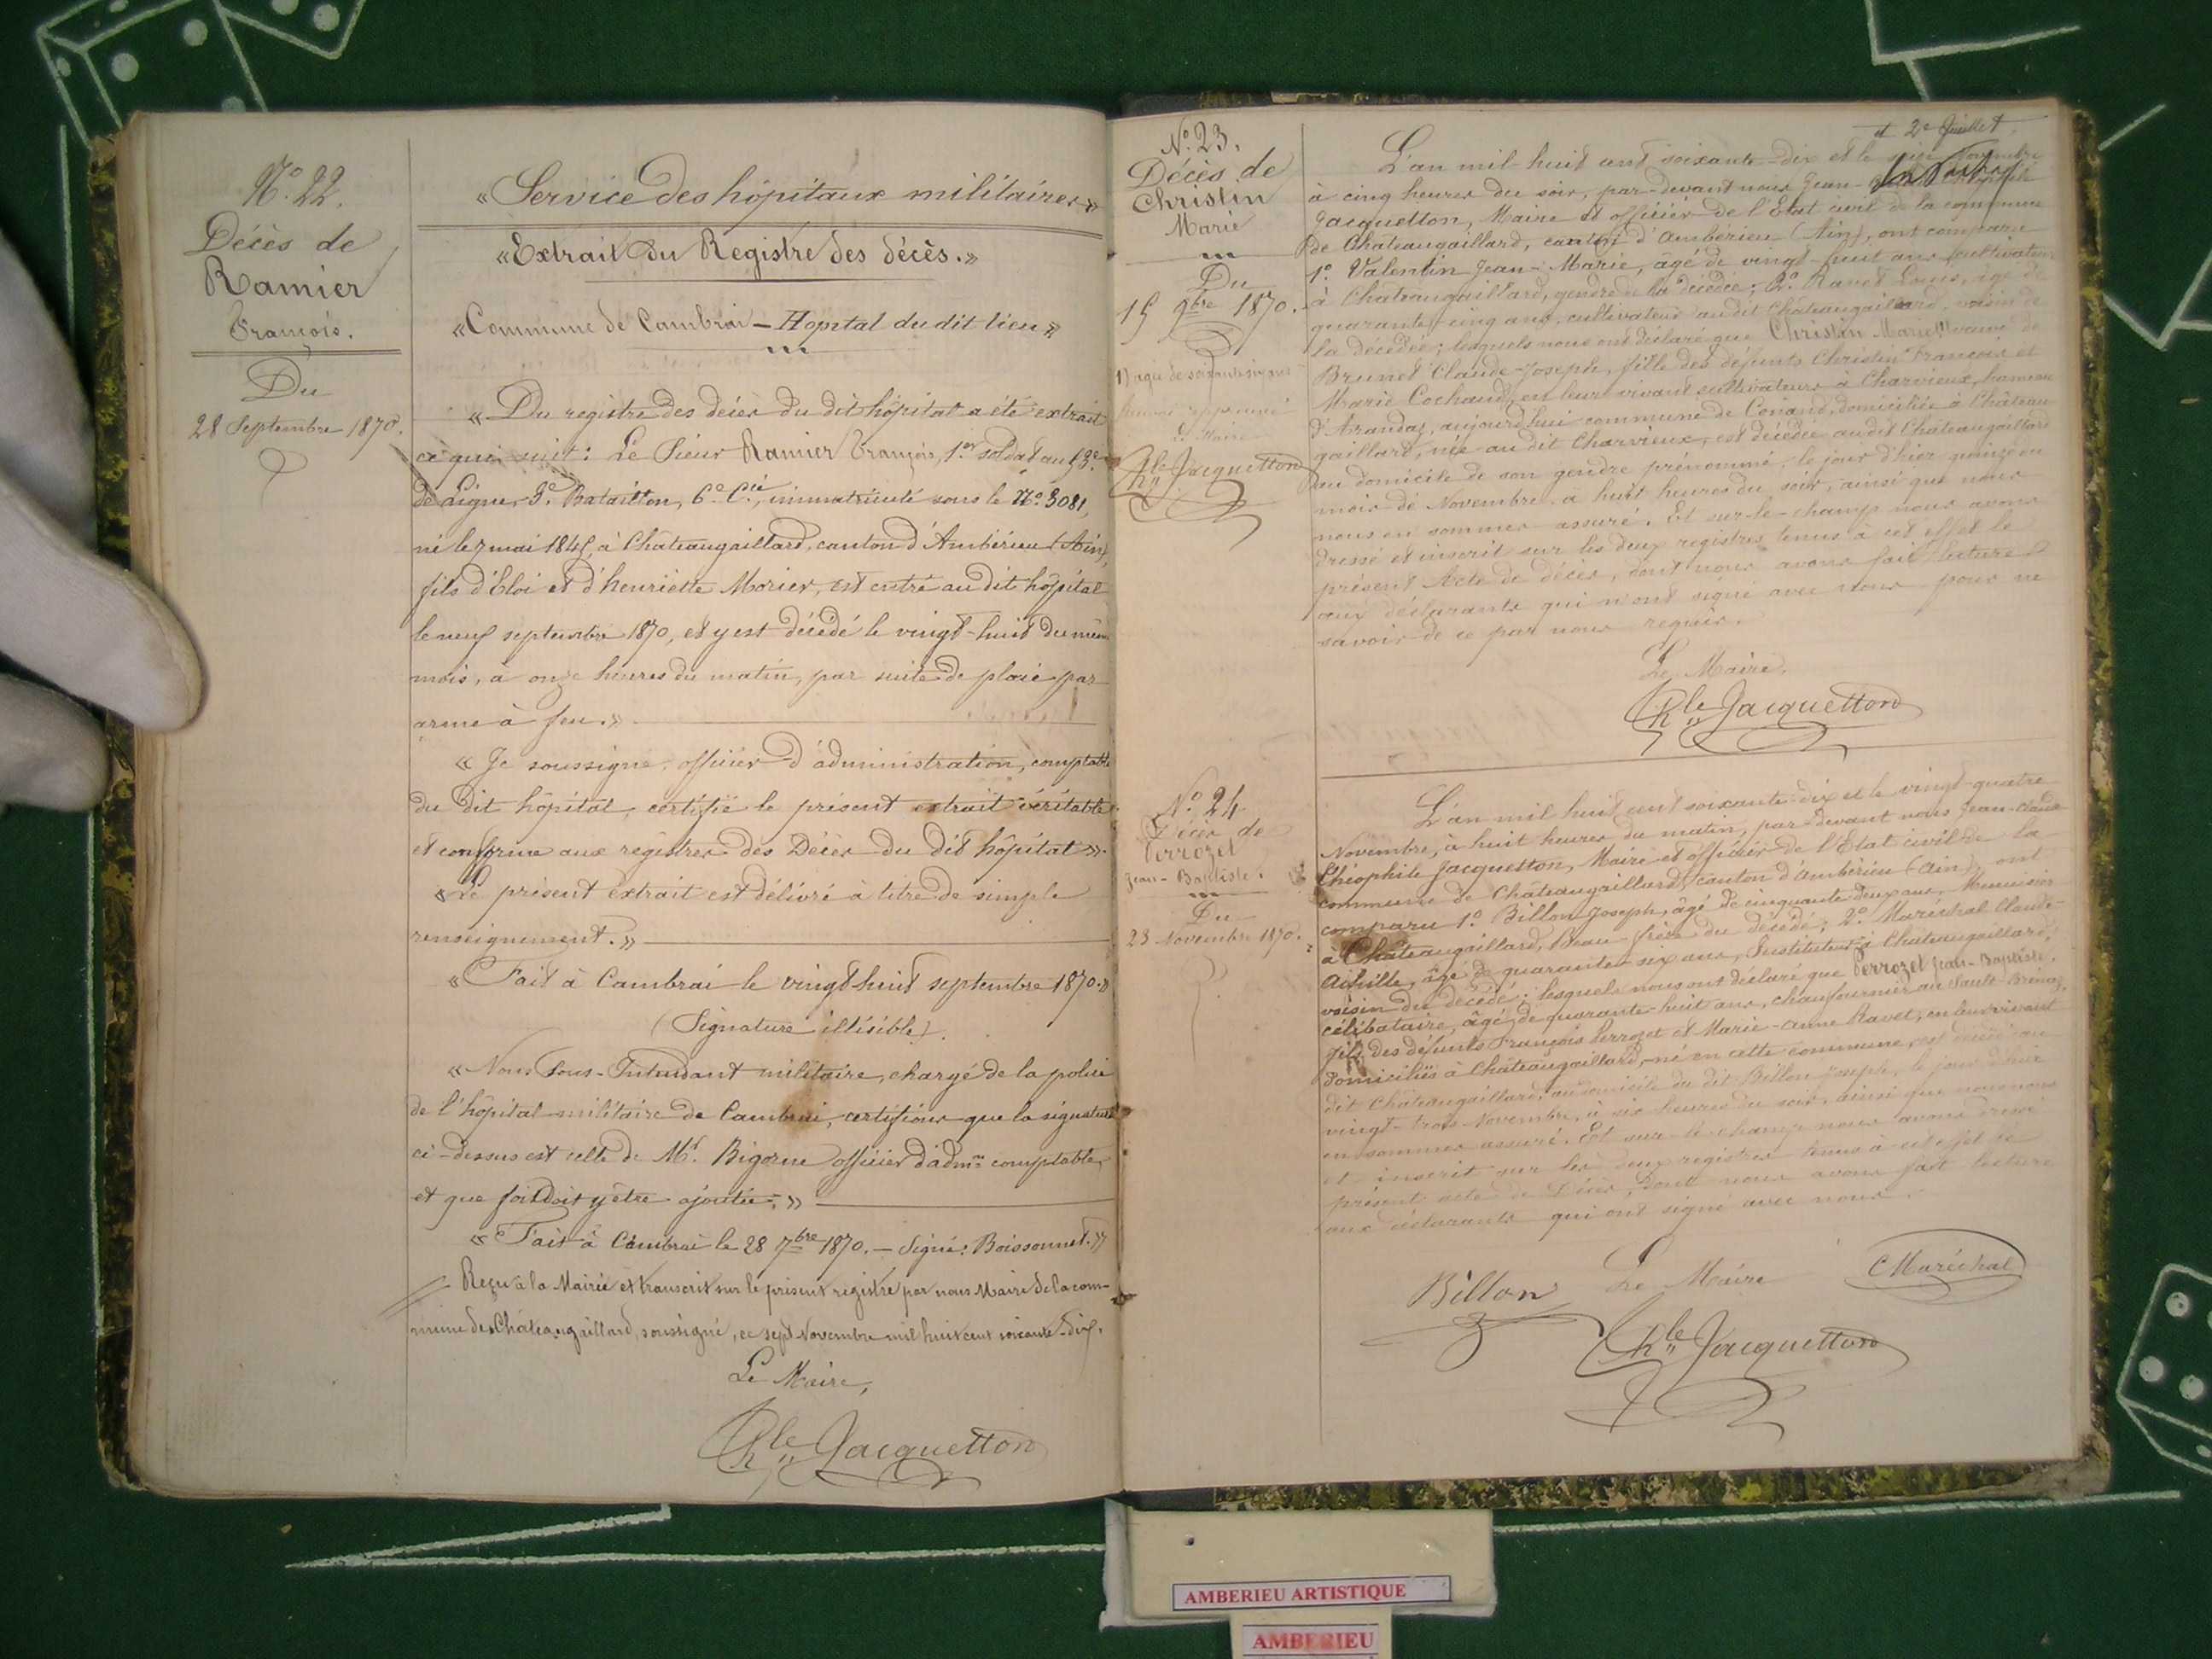 N.º 22.
Décès de
Ramier
François.
Du
28 Septembre 1870.
«Service des hôpitaux militaires»
«Extrait du Registre des décès.»
«Commune de Cambrai — Hôpital du dit lieu»
«Du registre des décès du dit hôpital a été extrait
ce qui suit: Le Sieur Ramier François, 1.er soldat au 43.e
de Ligne, 3.e Bataillon, 6.e C.ie, immatriculé sous le N.º 3081,
né le 7 mai 1845, à Châteaugaillard, canton d'Ambérieu (Ain),
fils d'Eloi et d'henriette Morier, est entré au dit hôpital
le neuf septembre 1870, et y est décédé le vingt-huit du même
mois, à onze heures du matin, par suite de plaie par
arme à feu.»
«Je soussigné, officier d'administration, comptable
du dit hôpital, certifie le présent extrait véritable
et conforme aux registres des Décès du dit hôpital».
«Le présent extrait est délivré à titre de simple
renseignement.»
«Fait à Cambrai le vingt huit septembre 1870.»
(Signature illisible).
«Nous Sous-Intendant militaire, chargé de la police
de l'hôpital militaire de Cambrai, certifions que la signature
ci-dessus est celle de M.r Bigorne officier d'adm.on comptable,
et que foi doit y être ajoutée.»
«Fait à Cambrai le 28 7bre 1870. — Signé: Boissonnet.»
Reçu à la Mairie et transcrit sur le présent registre par nous Maire de la com-
mune de Châteaugaillard, soussigné, ce sept Novembre mil huit cent soixante-dix.
Le Maire,
Th.le Jacquetton
N.º 23.
Décès de
Christin
Marie
Du
15 9bre 1870.
1) agée de soixante six ans
approuvé
Le Maire
Th.le Jacquetton
et 2e feuillet.
L'an mil-huit cent soixante-dix et le seize Novembre
à cinq heures du soir, par-devant nous Jean-
Jacquetton, Maire et officier de l'Etat civil de la commune
de Châteaugaillard, canton d'Ambérieu (Ain), ont comparu
1.º Valentin Jean-Marie, âgé de vingt-huit ans cultivateur
à Châteaugaillard, gendre de la décédée; 2.º Ravet Louis, âgé de
quarante-cinq ans, cultivateur audit Châteaugaillard, voisin de
la décédée; lesquels nous ont déclaré que Christin Marie(1) veuve de
Brunet Claude-Joseph, fille des défunts Christin François et
Marie Cochaud, en leur vivant cultivateurs à Charvieux, hameau
d'Arandas, aujourd'hui commune de Conand, domiciliée à Château
gaillard, née au dit Charvieux, est décédée audit Châteaugaillard
au domicile de son gendre prénommé, le jour d'hier quinze du
mois de Novembre à huit heures du soir, ainsi que nous
nous en sommes assuré. Et sur-le-champ nous avons
dressé et inscrit sur les deux registres tenus à cet effet le
présent Acte de décès, dont nous avons fait lecture
aux déclarants qui n'ont signé avec nous pour ne
savoir de ce par nous requis.
Le Maire,
Th.le Jacquetton
N.º 24
Décès de
Perrozet
Jean-Baptiste.
Du
23 Novembre 1870.
L'an mil huit cent soixante-dix et le vingt-quatre
Novembre, à huit heures du matin, par-devant nous Jean-Claude
Théophile Jacquetton, Maire et officier de l'Etat civil de la
commune de Châteaugaillard, canton d'Ambérieu (Ain), ont
comparu 1.º Billon Joseph, âgé de cinquante-deux ans, Menuisier
à Châteaugaillard, Beau-frère du décédé; 2.º Maréchal Claude-
Achille, âgé de quarante-six ans, Instituteur à Châteaugaillard,
voisin du décédé; lesquels nous ont déclaré que Perrozet Jean-Baptiste,
célibataire, âgé de quarante-huit ans, chaufournier au Sault-Brénaz,
fils des défunts François Perrozet et Marie-anne Ravet, en leur vivant
domiciliés à Châteaugaillard, né en cette commune, est décédé au
dit Châteaugaillard, au domicile du dit Billon Joseph, le jour d'hier
vingt-trois Novembre, à six heures du soir, ainsi que nous nous
en sommes assuré. Et sur-le-champ nous avons dressé
et inscrit sur les deux registres tenus à cet effet le
présent acte de Décès, dont nous avons fait lecture
aux déclarants qui ont signé avec nous.
Billon
Le Maire
CMaréchal
Th.le Jacquetton
AMBERIEU ARTISTIQUE
AMBERIEU